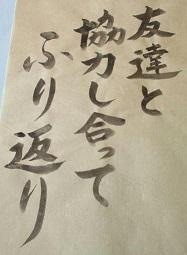 友達と
協力し合って
ふり返り